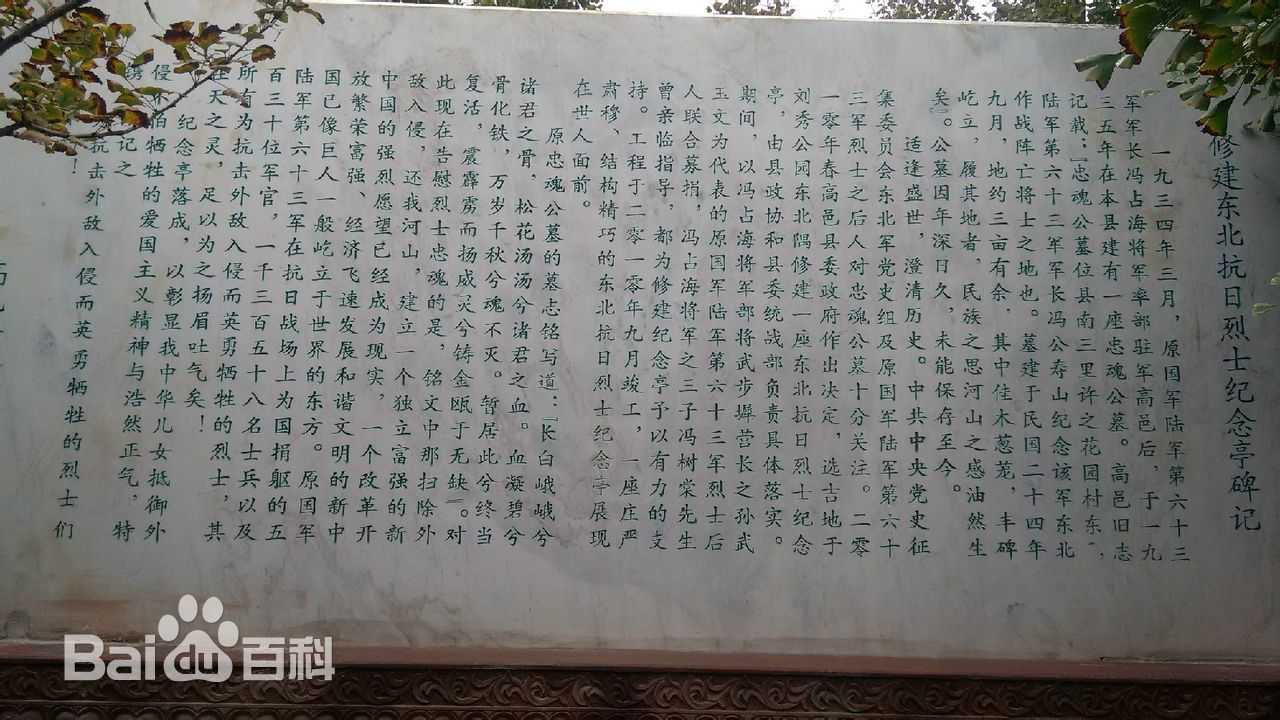 修建东北抗日烈士纪念亭碑记
一九三四年三月，原国军陆军第六十三
军军长冯占海将军率部驻军高邑后，于一九
三五年在本县建有一座忠魂公墓。高邑旧志
记载：“忠魂公墓位县南三里许之花园村东，
陆军第六十三军军长冯公寿山纪念该军东北
作战阵亡将士之地也。墓建于民国二十四年
九月，地约三亩有余，其中佳木葱茏，丰碑
屹立，履其地者，民族之思河山之感油然生
矣。公墓因年深日久，未能保存至今。
适逢盛世，澄清历史。中共中央党史征
集委员会东北军党史组及原国军陆军第六十
三军烈士之后人对忠魂公墓十分关注。二零
一零年春高邑县委政府作出决定，选吉地于
刘秀公园东北隅修建一座东北抗日烈士纪念
亭，由县政协和县委统战部负责具体落实。
期间，以冯占海将军部将武步墀营长之孙武
玉文为代表的原国军陆军第六十三军烈士后
人联合募捐，冯占海将军之三子冯树棠先生
曾亲临指导，都为修建纪念亭予以有力的支
持。工程于二零一零年九月竣工，一座庄严
肃穆、结构精巧的东北抗日烈士纪念亭展现
在世人面前。
原忠魂公墓的墓志铭写道：“长白峨峨兮
诸君之骨，松花汤汤兮诸君之血。血凝碧兮
骨化铁，万岁千秋兮魂不灭。暂居此兮终当
复活，震霹雳而扬威灵兮铸金瓯于无缺”。对
此现在告慰烈士忠魂的是，铭文中那扫除外
敌入侵，还我河山，建立一个独立富强的新
中国的强烈愿望已经成为现实，一个改革开
放繁荣富强、经济飞速发展和谐文明的新中
国已像巨人一般屹立于世界的东方。原国军
陆军第六十三军在抗日战场上为国捐躯的五
百三十位军官，一千三百五十八名士兵以及
所有为抗击外敌入侵而英勇牺牲的烈士，其
在天之灵，足以为之扬眉吐气矣！
纪念亭落成，以彰显我中华儿女抵御外
侵不怕牺牲的爱国主义精神与浩然正气，特
记之
抗击外敌入侵而英勇牺牲的烈士们
！
Bai du 百科